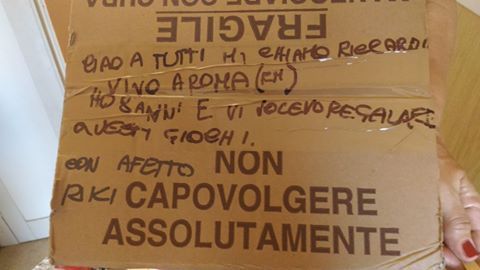 CON CURA
FRAGILE
CIAO A TUTTI MI CHIAMO RICCARDO
VIVO A ROMA (RM)
HO 8 ANNI E VI VOLEVO REGALARE
QUESTI GIOCHI.
CON AFETTO
RIKI
NON
CAPOVOLGERE
ASSOLUTAMENTE